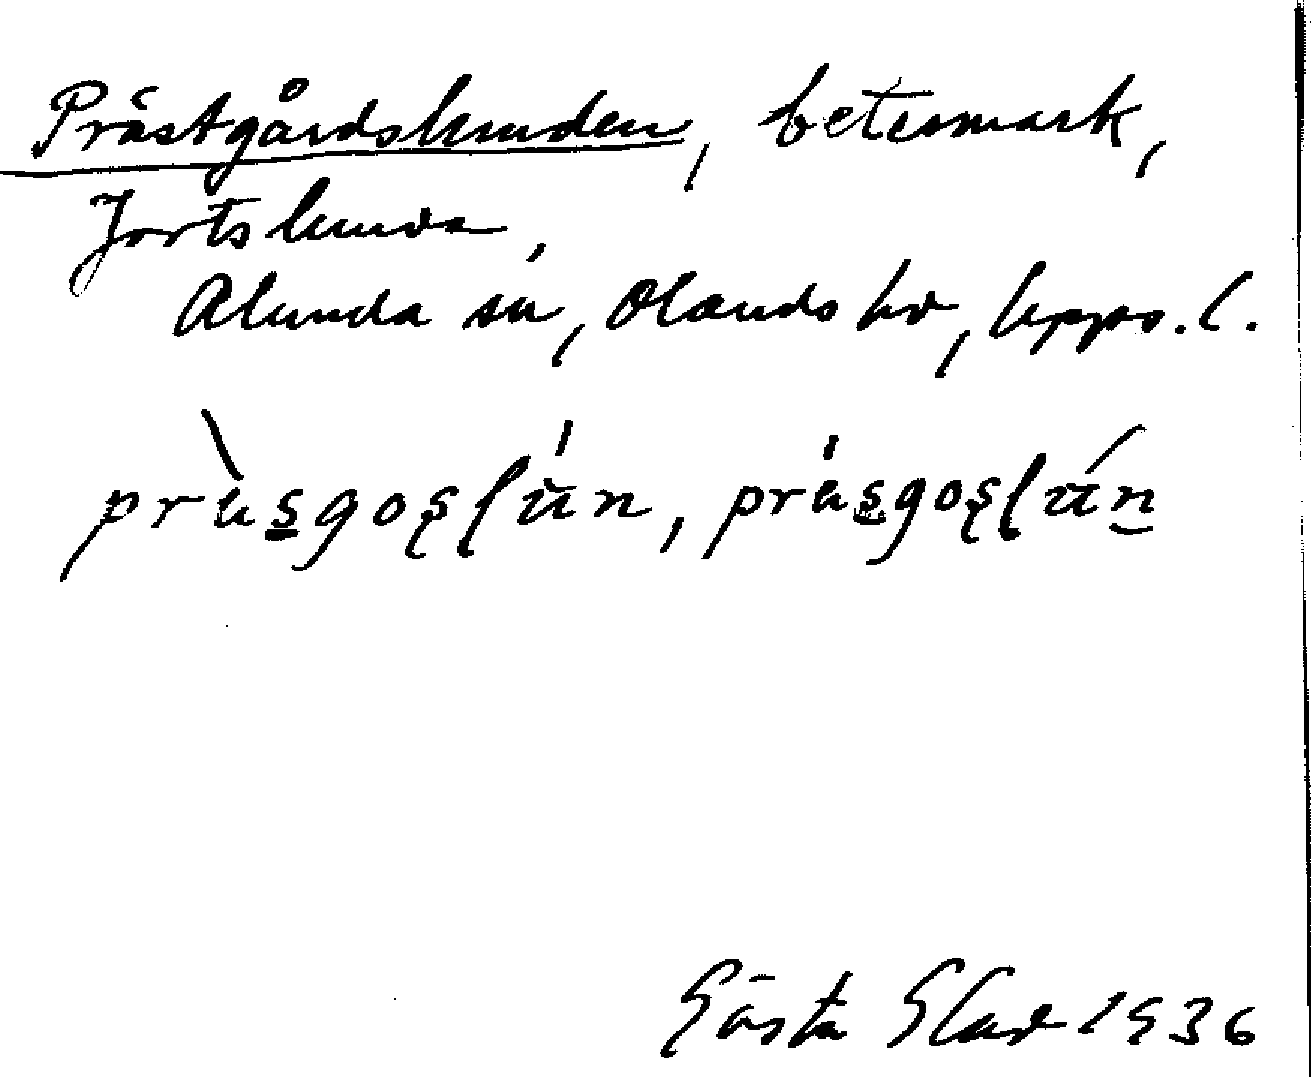 Prästgårdslunden, betesmark,
Jortslunda,
Alunda sn, Olands hd, Upps. l.
pràsgoşlún, prásgoşlún
Gösta Elud 1936